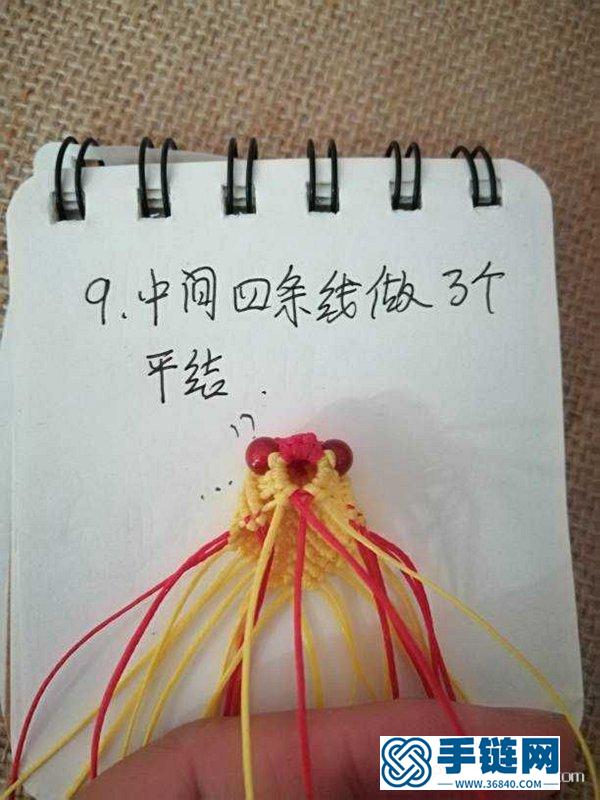 9.中间四条线做3个
平结.
手链网
www.36840.com